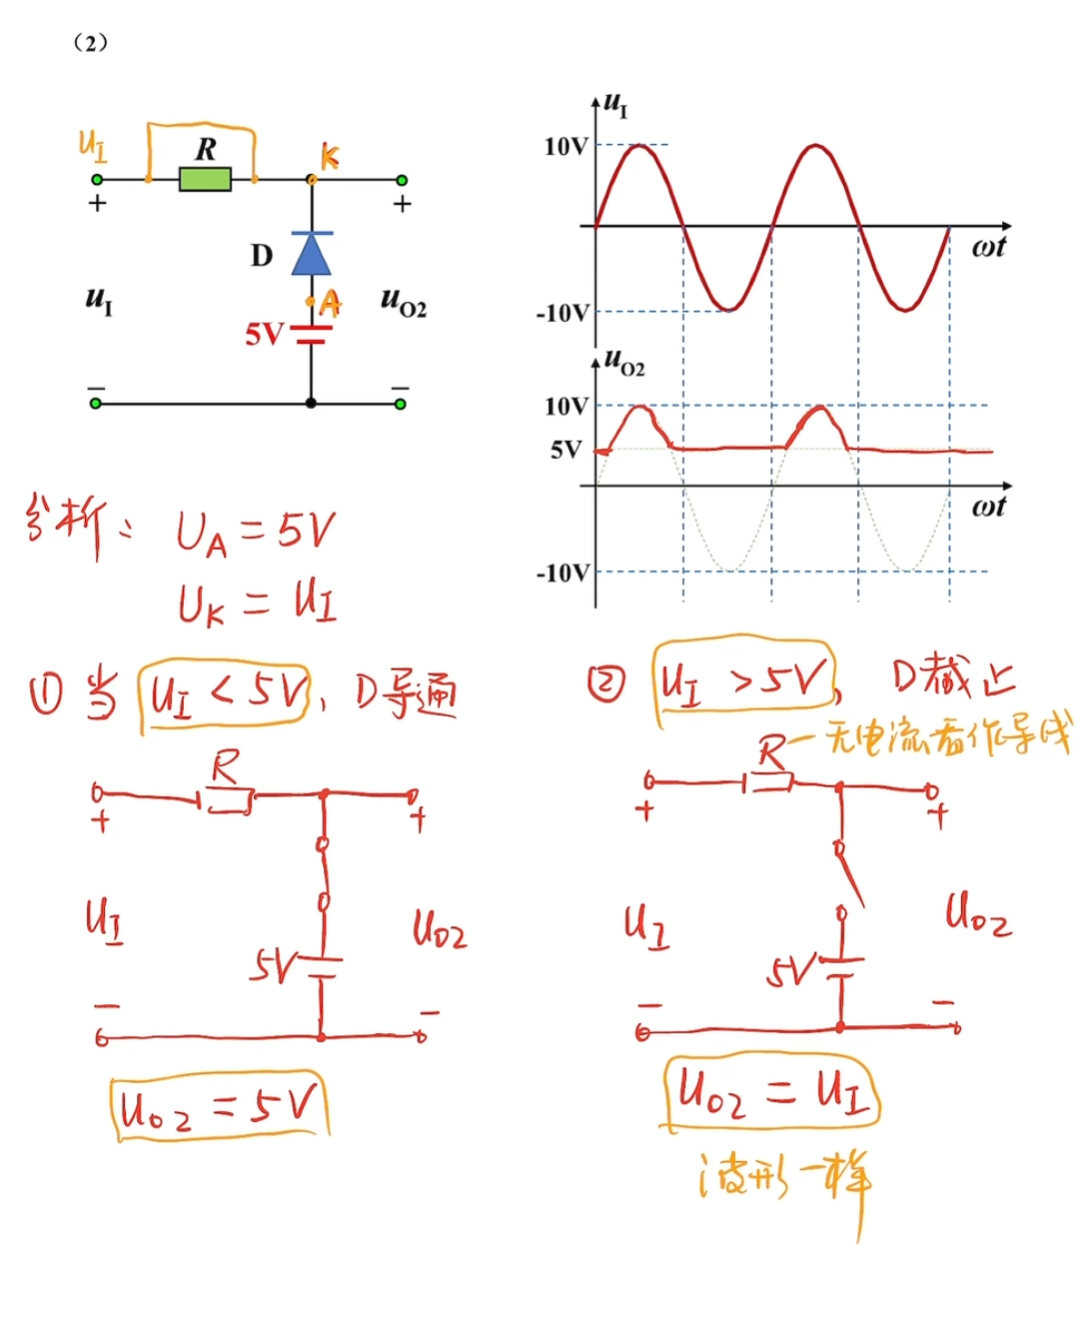 （2）
uI
R
K
+
+
D
uI
A
uO2
5V
−
−
uI
10V
ωt
-10V
uO2
10V
5V
ωt
-10V
分析：UA = 5V
UK = uI
① 当 uI < 5V，D导通
R
+
+
uI
uO2
5V
−
−
uO2 = 5V
② uI > 5V，D截止
R—无电流看作导线
+
+
uI
uO2
5V
−
−
uO2 = uI
波形一样